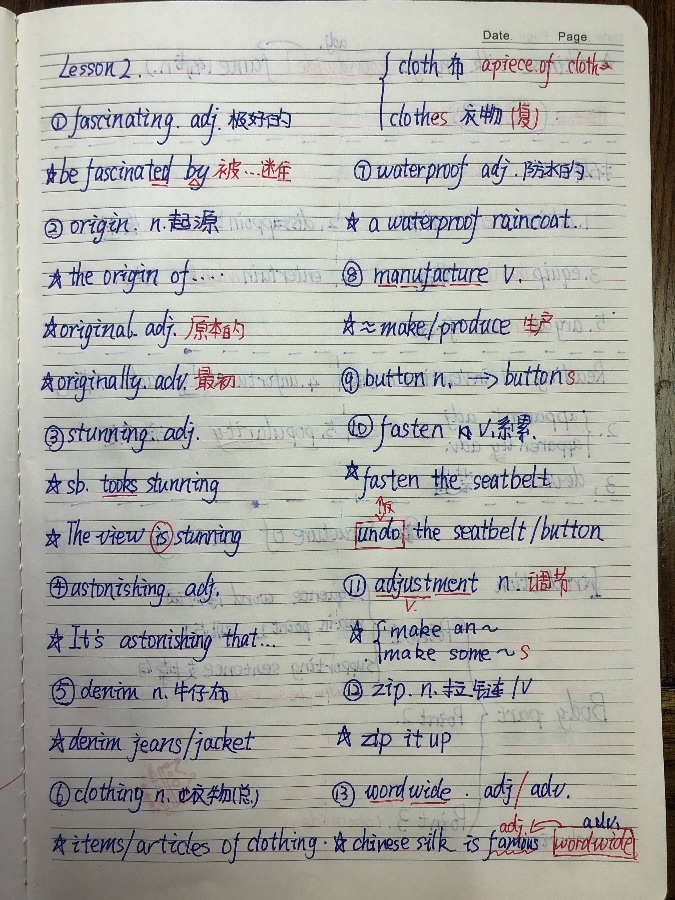 Date. Page.
Lesson 2.
① fascinating. adj. 极好的
☆be fascinated by 被...迷住
② origin. n. 起源
☆ the origin of ....
☆original. adj. 原本的
☆originally. adv. 最初
③ stunning. adj.
☆ sb. looks stunning
☆ The view is stunning
④ astonishing. adj.
☆ It's astonishing that...
⑤ denim n. 牛仔布
☆denim jeans/jacket
⑥ clothing n. 衣物(总)
☆items/articles of clothing.
cloth 布 apiece of cloth
clothes 衣物 (复)
⑦ waterproof adj. 防水的
☆ a waterproof raincoat...
⑧ manufacture v.
☆≈make/produce 生产
⑨ button n. → buttons
⑩ fasten v. 系累.
☆fasten the seatbelt
反
undo the seatbelt/button
⑪ adjustment n. 调节
v.
☆ { make an~
make some ~s
⑫ zip. n. 拉链/v
☆ zip it up
⑬ wordwide. adj/adv.
adj. adv.
☆ chinese silk is famous wordwide